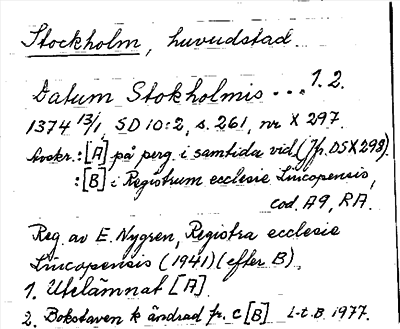 Stockholm, huvudstad.
Datum Stokholmis...1. 2.
1374 13/1, SD 10:2, s. 261, nr X 297.
Avskr.: [A] på perg. i samtida vid. (Jfr. DS X 298).
: [B] i Registrum ecclesie Lincopensis,
cod. A9, RA.
Reg. av E. Nygren, Registra ecclesie
Lincopensis (1941) (efter B).
1. Utelämnat [A].
2. Bokstaven k ändrad fr. c [B] L-t.B. 1977.